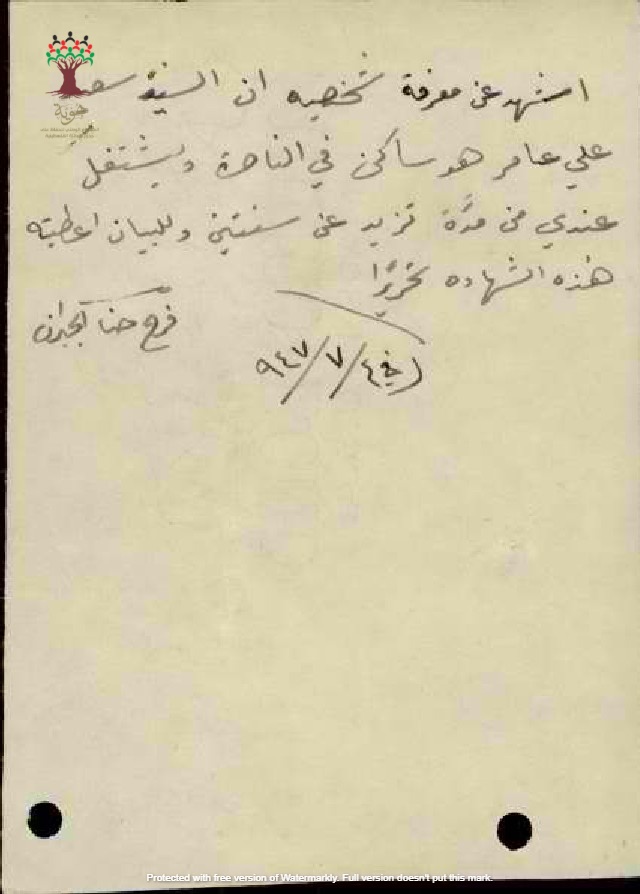 اشهد عن معرفة شخصيه ان السيد
علي عامر هو ساكن في الناصرة ويشتغل
عندي من مدَّة تزيد عن سنتين وللبيان اعطيته
هذه الشهاده تحريرًا
فرح حنا
في ٤/٧/٩٤٧
هوية
Protected with free version of Watermarkly. Full version doesn't put this mark.